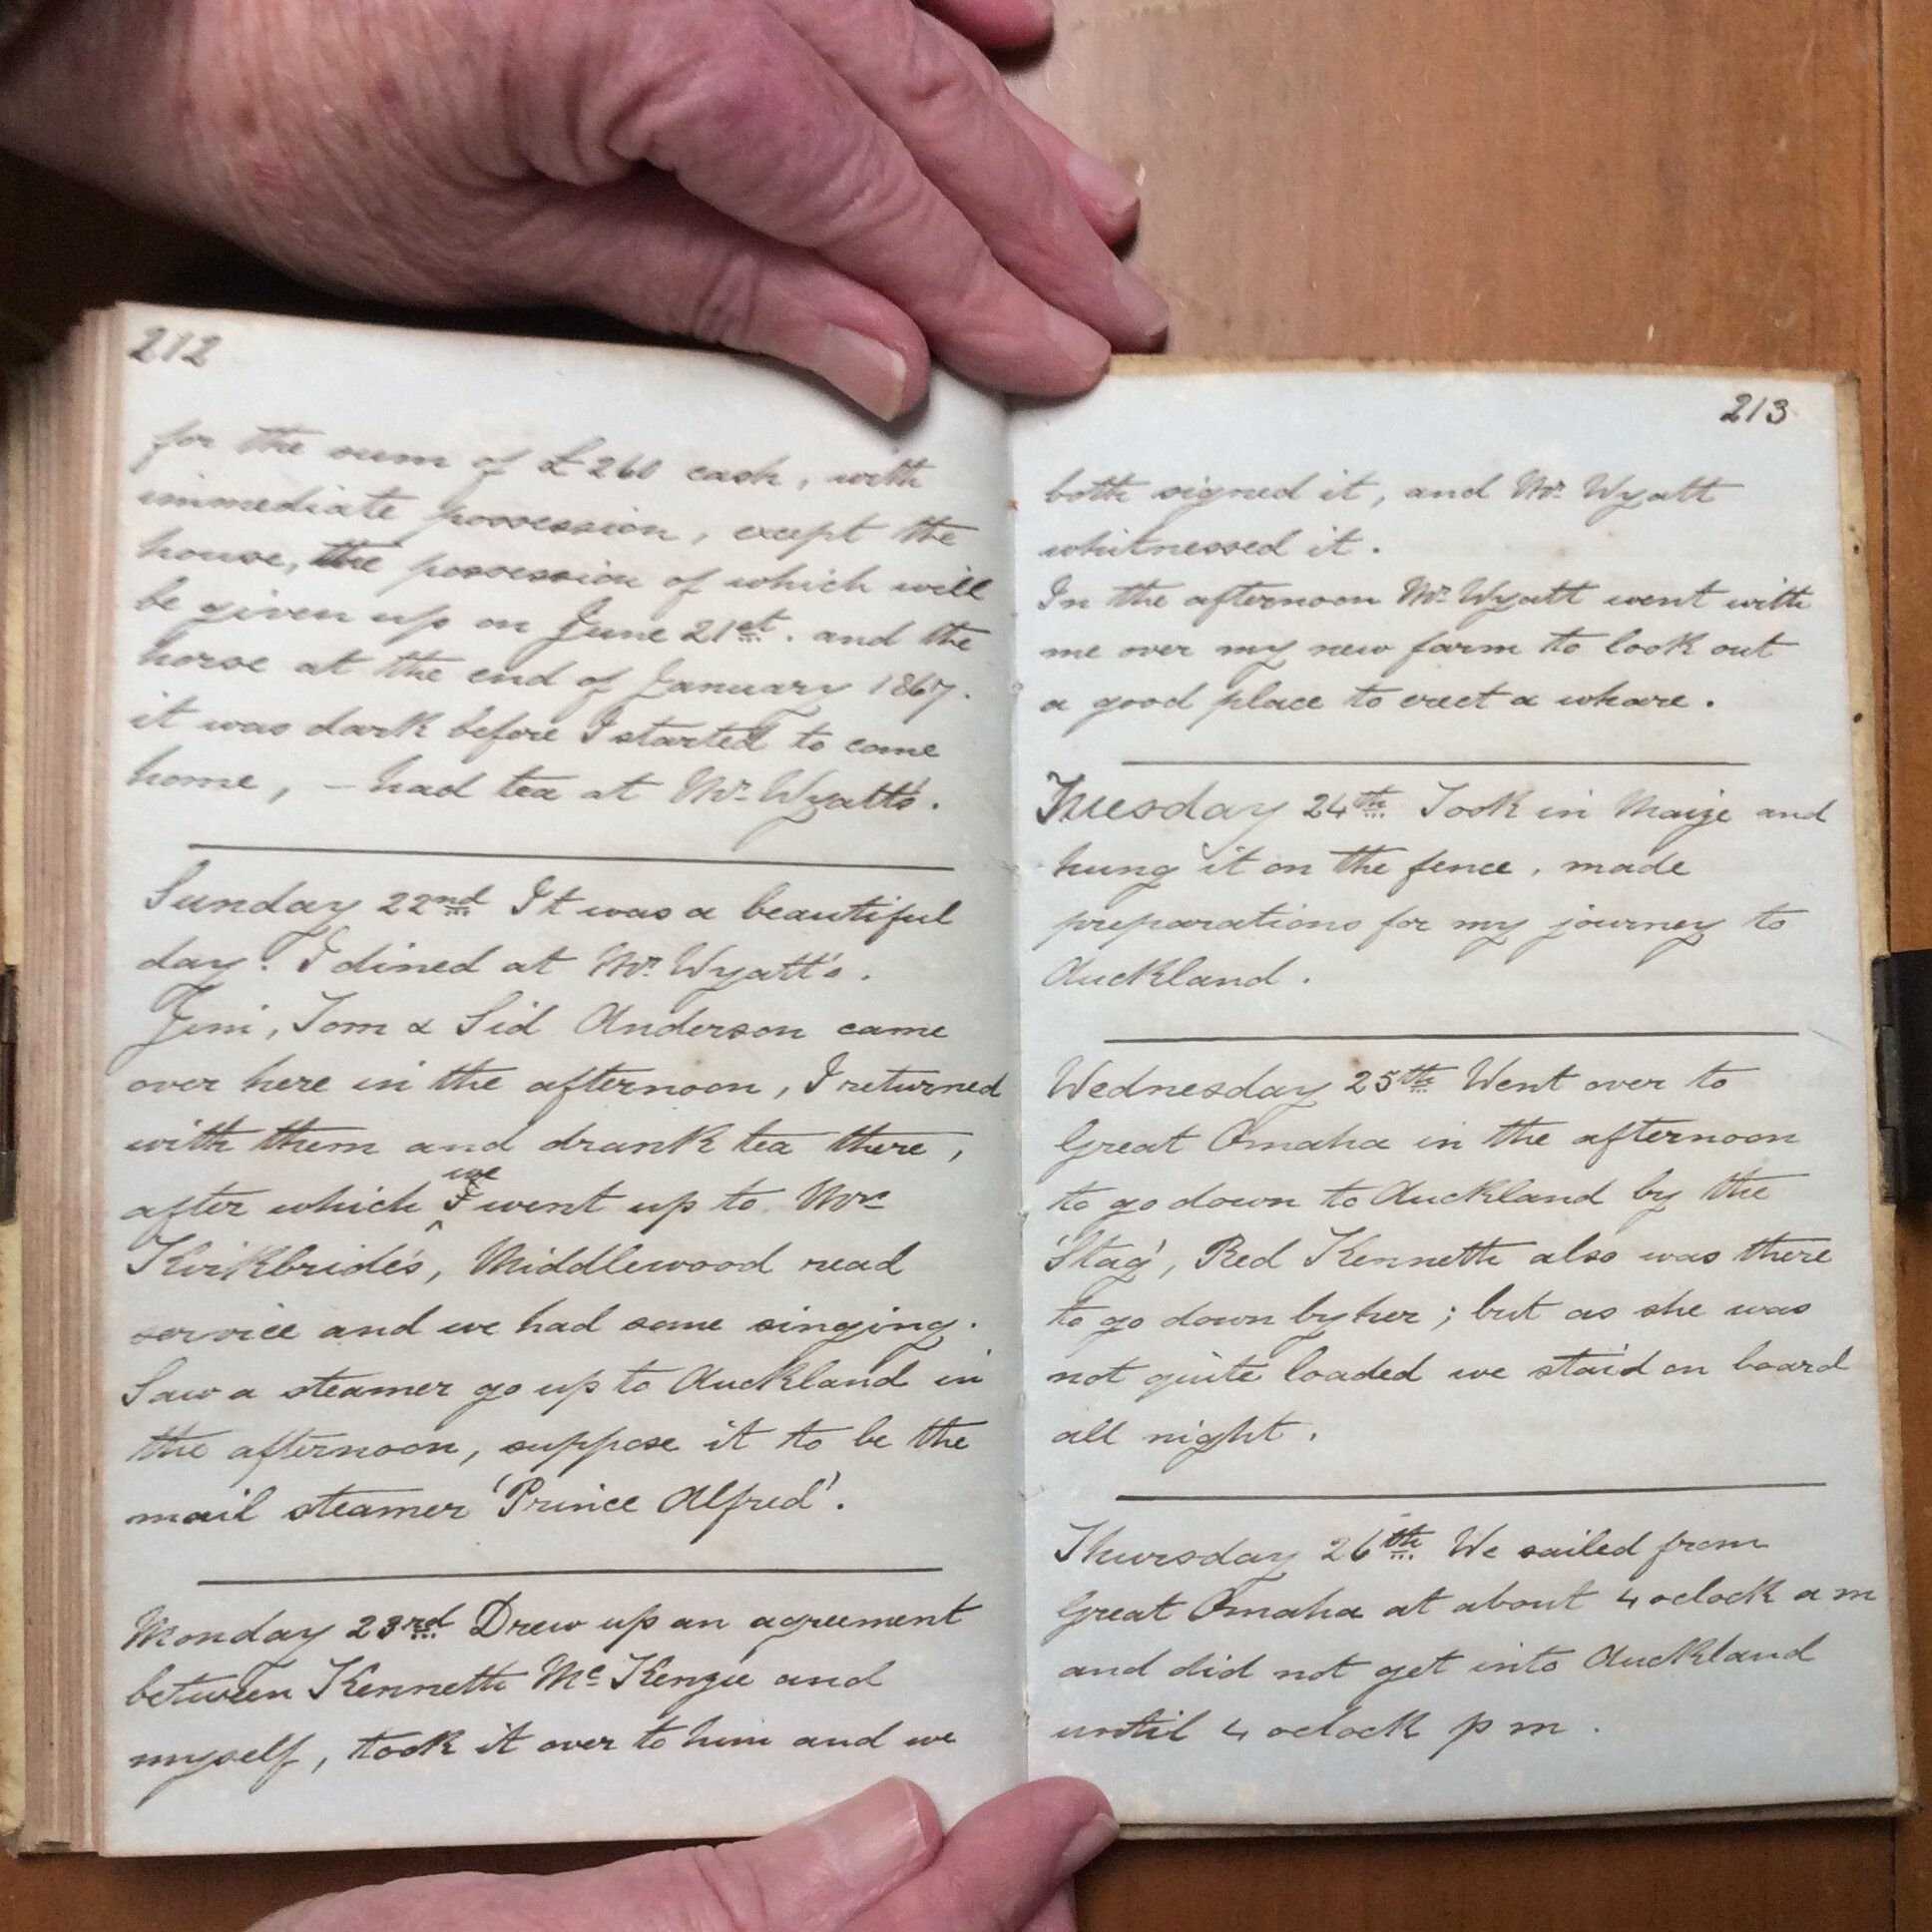 212
for the sum of £260 cash, with
immediate possession, except the
house, the possession of which will
be given up on June 21st. and the
horse at the end of January 1867.
it was dark before I started to come
home, – had tea at Mr. Wyatt's.
Sunday 22nd It was a beautiful
day. I dined at Mr. Wyatt's.
Jim, Tom & Sid Anderson came
over here in the afternoon, I returned
with them and drank tea there,
we
after which I went up to Mrs
Kirkbride's, Middlewood read
service and we had some singing.
Saw a steamer go up to Auckland in
the afternoon, suppose it to be the
mail steamer 'Prince Alfred'.
Monday 23rd Drew up an agreement
between Kenneth McKenzie and
myself, took it over to him and we
213
both signed it, and Mr. Wyatt
whitnessed it.
In the afternoon Mr. Wyatt went with
me over my new farm to look out
a good place to erect a whare.
Tuesday 24th Took in Maize and
hung it on the fence, made
preparations for my journey to
Auckland.
Wednesday 25th Went over to
Great Omaha in the afternoon
to go down to Auckland by the
'Stag', Red Kenneth also was there
to go down by her; but as she was
not quite loaded we staid on board
all night.
Thursday 26th We sailed from
Great Omaha at about 4 oclock a m
and did not get into Auckland
until 4 oclock p m.